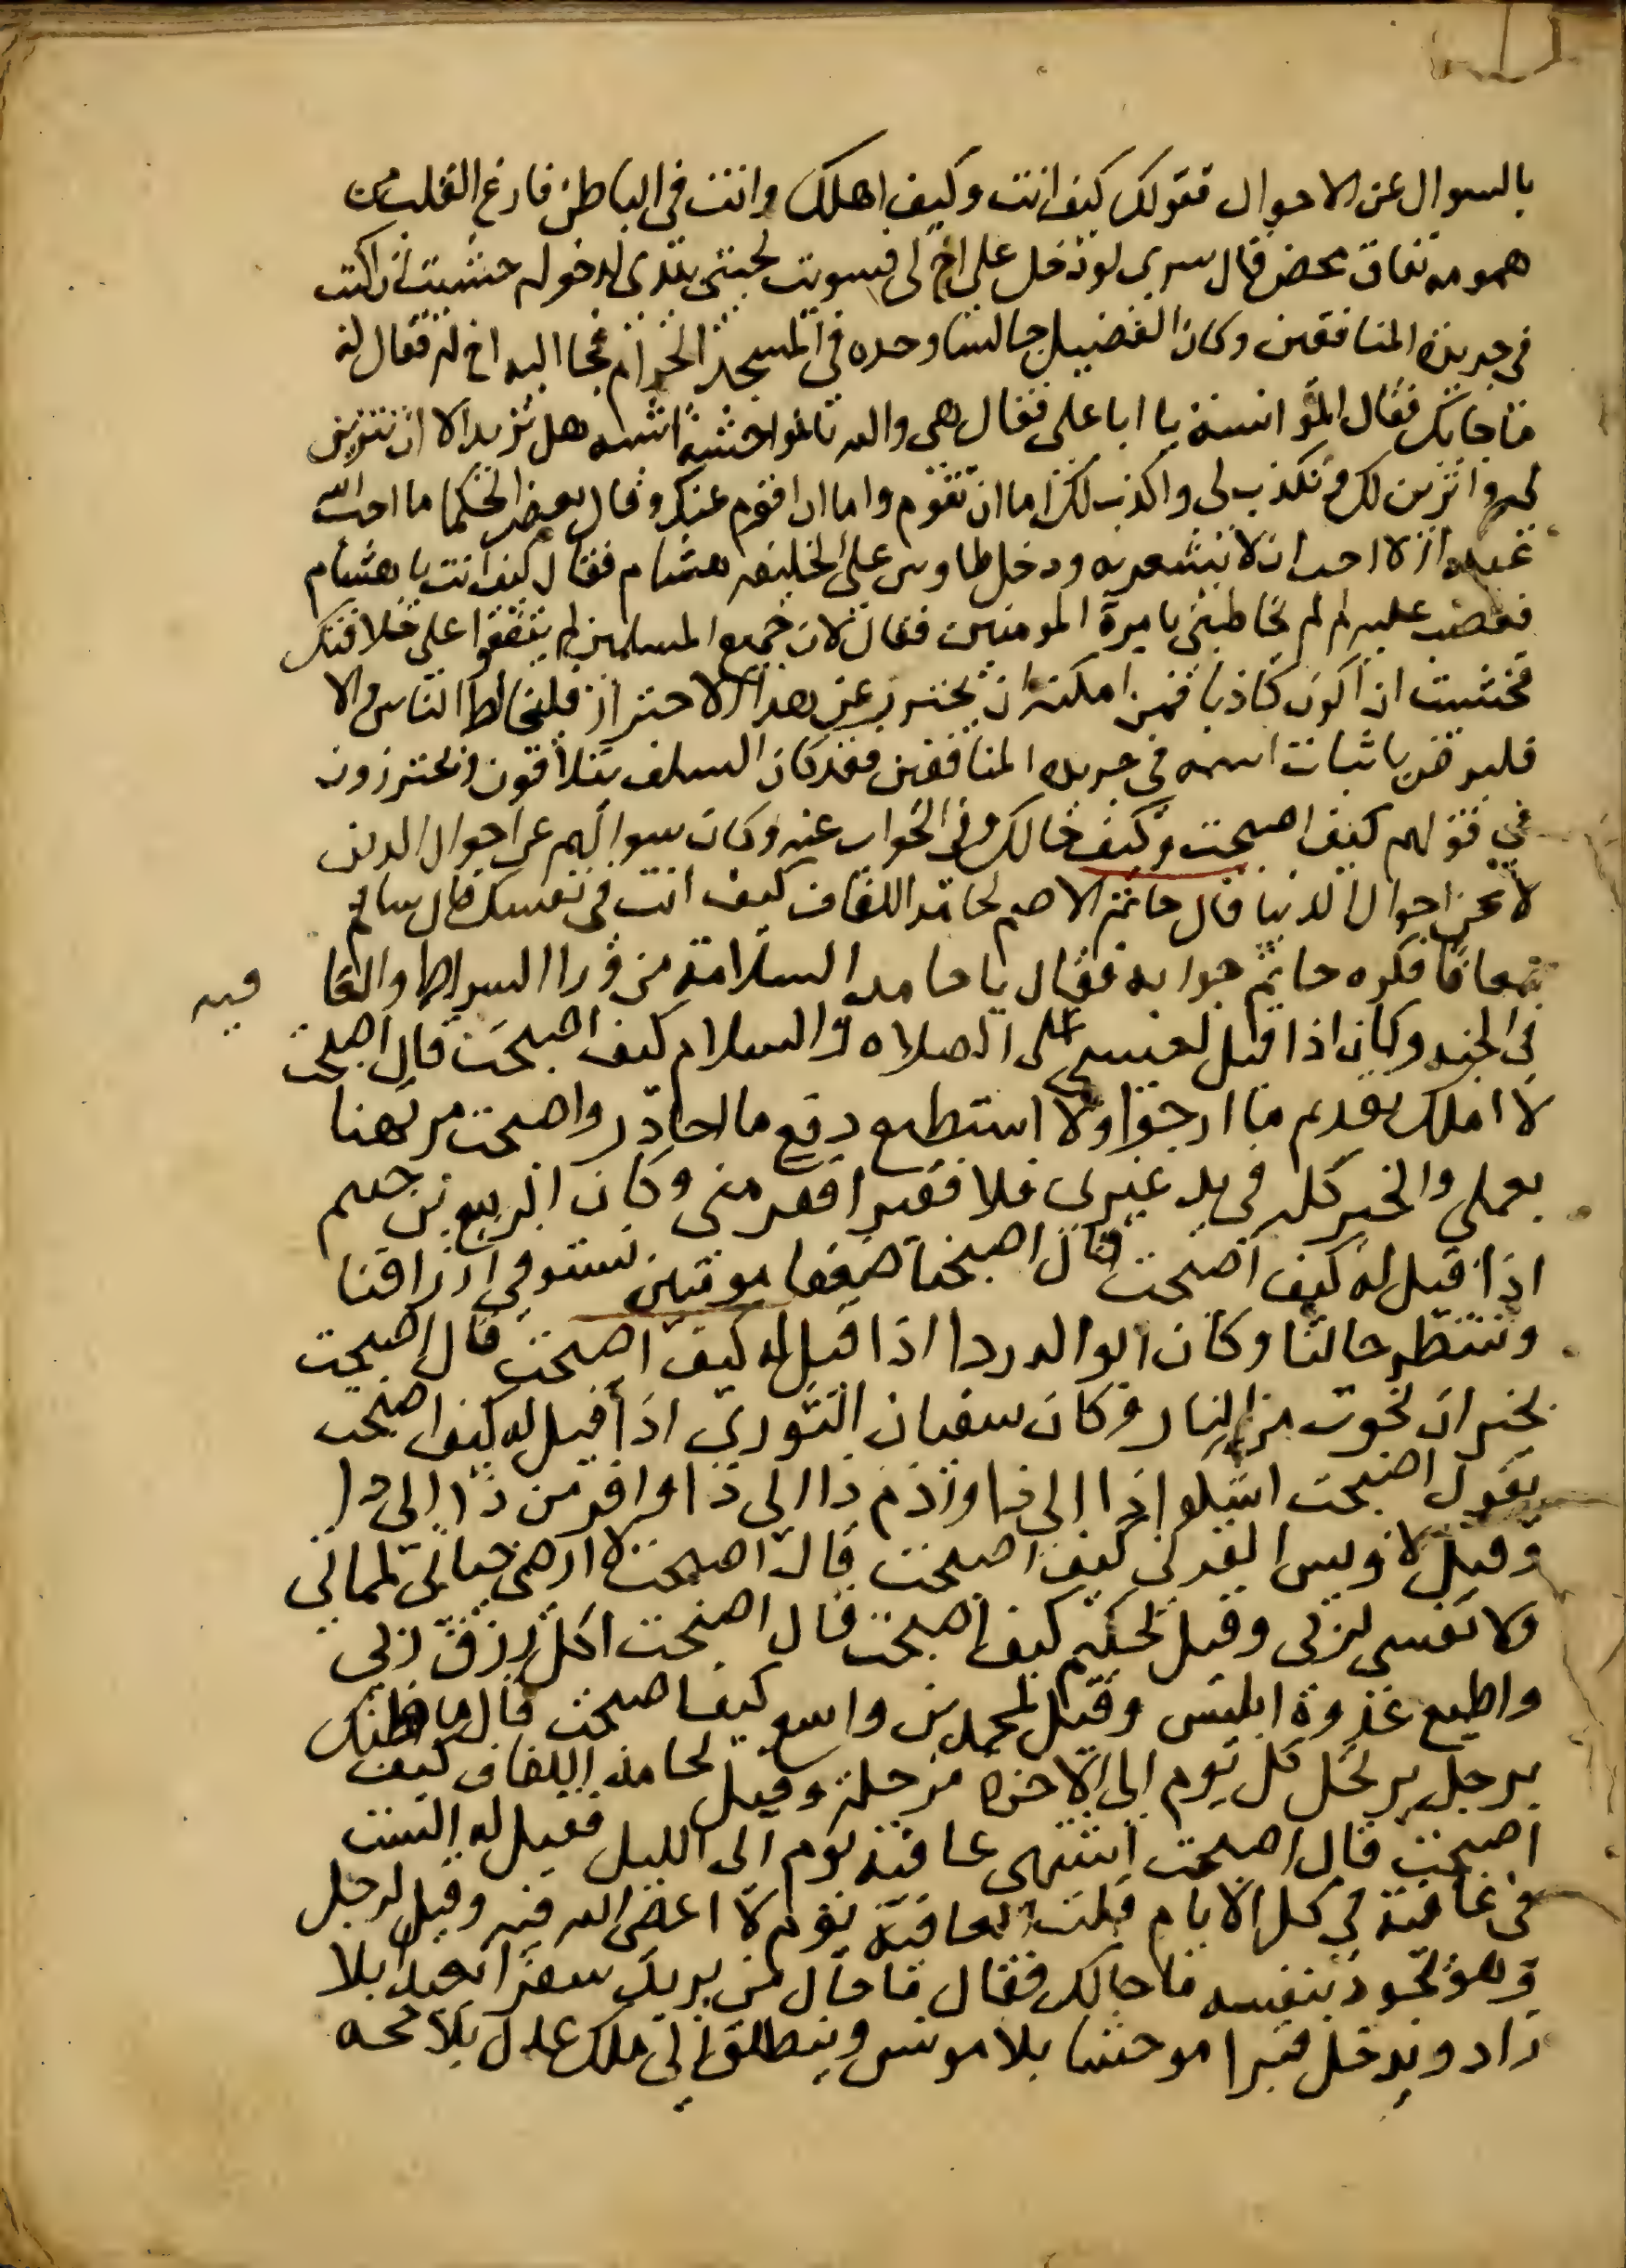 بالسوال عن الاحوال فقولك كيف انت وكيف اهلك وانت في الباطن فارغ القلب من
همومه نفاق محض قال سرى لو دخل علي اخ لى فسويت لحيتي بيدى لدخوله خشيت ان اكتب
في جريدة المنافقين وكان الفضيل جالسا وحده في المسجد الحرام فجا اليه اخ له فقال له
ما جابك فقال المؤانسة يا ابا على فقال هى والله بالمواحشة اشبه هل تريد الا ان تتزين
لي واتزين لك وتكذب لى واكذب لك اما ان تقوم واما ان اقوم عنك وقال بعض الحكما ما احب الله
عبدا الا احب ان لا يشعر به ودخل طاوس على الخليفه هشام فقال كيف انت يا هشام
فغضب عليه لم لم تخاطبني بامرة المومنين فقال لان جميع المسلمين لم يتفقوا على خلافتك
فخشيت ان اكون كاذبا فمن امكنه ان يحترز عن هذا الاحتراز فليخالط الناس والا
فليرض باثبات اسمه في جريده المنافقين فقد كان السلف يتلاقون ويحترزون
في قولهم كيف اصبحت وكيف حالك وفي الجواب عنه وكان سوالهم عن احوال الدين
لا عن احوال الدنيا قال حاتم الاصم لحامد اللفاف كيف انت في نفسك قال سالم
معافا فكره حاتم جوابه فقال يا حامد السلامة من ورا السراط والعافيه
في الجنه وكان اذا قيل لعيسى على الصلاه والسلام كيف اصبحت قال اصبحت
لا املك تقديم ما ارجوا ولا استطيع دفع ما احاذر واصبحت مرتهنا
بعملي والخير كله في يد غيرى فلا فقير افقر منى وكان الربيع بن خيثم
اذا قيل له كيف اصبحت قال اصبحنا ضعفا مونبين نستوفي ارزاقنا
وننتظر حالنا وكان ابو الدردا اذا قيل له كيف اصبحت قال اصبحت
بخير ان نجوت من النار وكان سفيان الثوري اذا قيل له كيف اصبحت
يقول اصبحت اشكوا ذا الى ذا واذم ذا الى ذا وافر من ذا الى ذا
وقيل لاويس القرني كيف اصبحت قال اصبحت لا ارضى حياتي لمماتي
ولا نفسي لربى وقيل لحكيم كيف اصبحت قال اصبحت اكل رزق ربي
واطيع عدوه ابليس وقيل لمحمد بن واسع كيف اصبحت قال ما ظنك
برجل يرتحل كل يوم الى الاخره مرحلة وقيل لحامد اللفاف كيف
اصبحت قال اصبحت اشتهى عافية يوم الى الليل فقيل له الست
في عافية في كل الايام قلت العافية يوم لا اعصى الله فيه وقيل لرجل
وهو يجود بنفسه ما حالك فقال ما حال من يريد سفرا بعيدا بلا
زاد ويدخل قبرا موحشا بلا مونس وينطلق الى ملك عدل بلا حجه